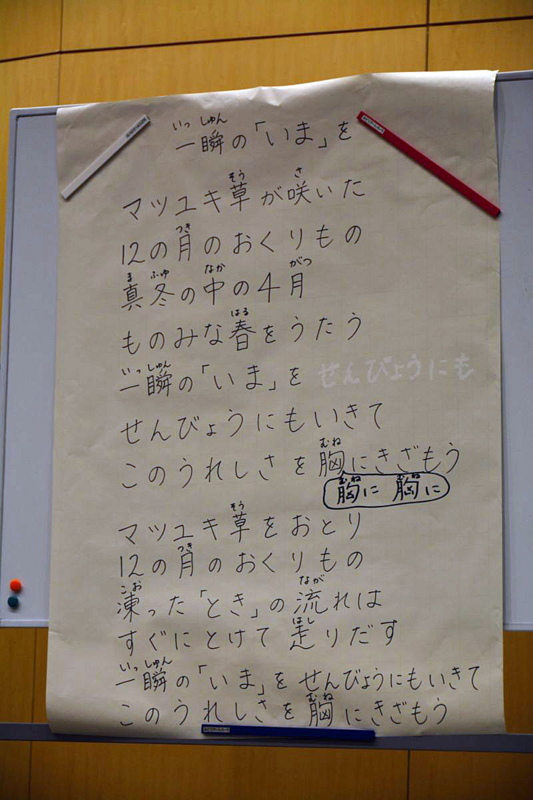 一瞬の「いま」を
マツユキ草が咲いた
12の月のおくりもの
真冬の中の4月
ものみな春をうたう
一瞬の「いま」を せんびょうにも
せんびょうにもいきて
このうれしさを胸にきざもう
胸に 胸に
マツユキ草をおとり
12の月のおくりもの
凍った「とき」の流れは
すぐにとけて走りだす
一瞬の「いま」を せんびょうにもいきて
このうれしさを胸にきざもう